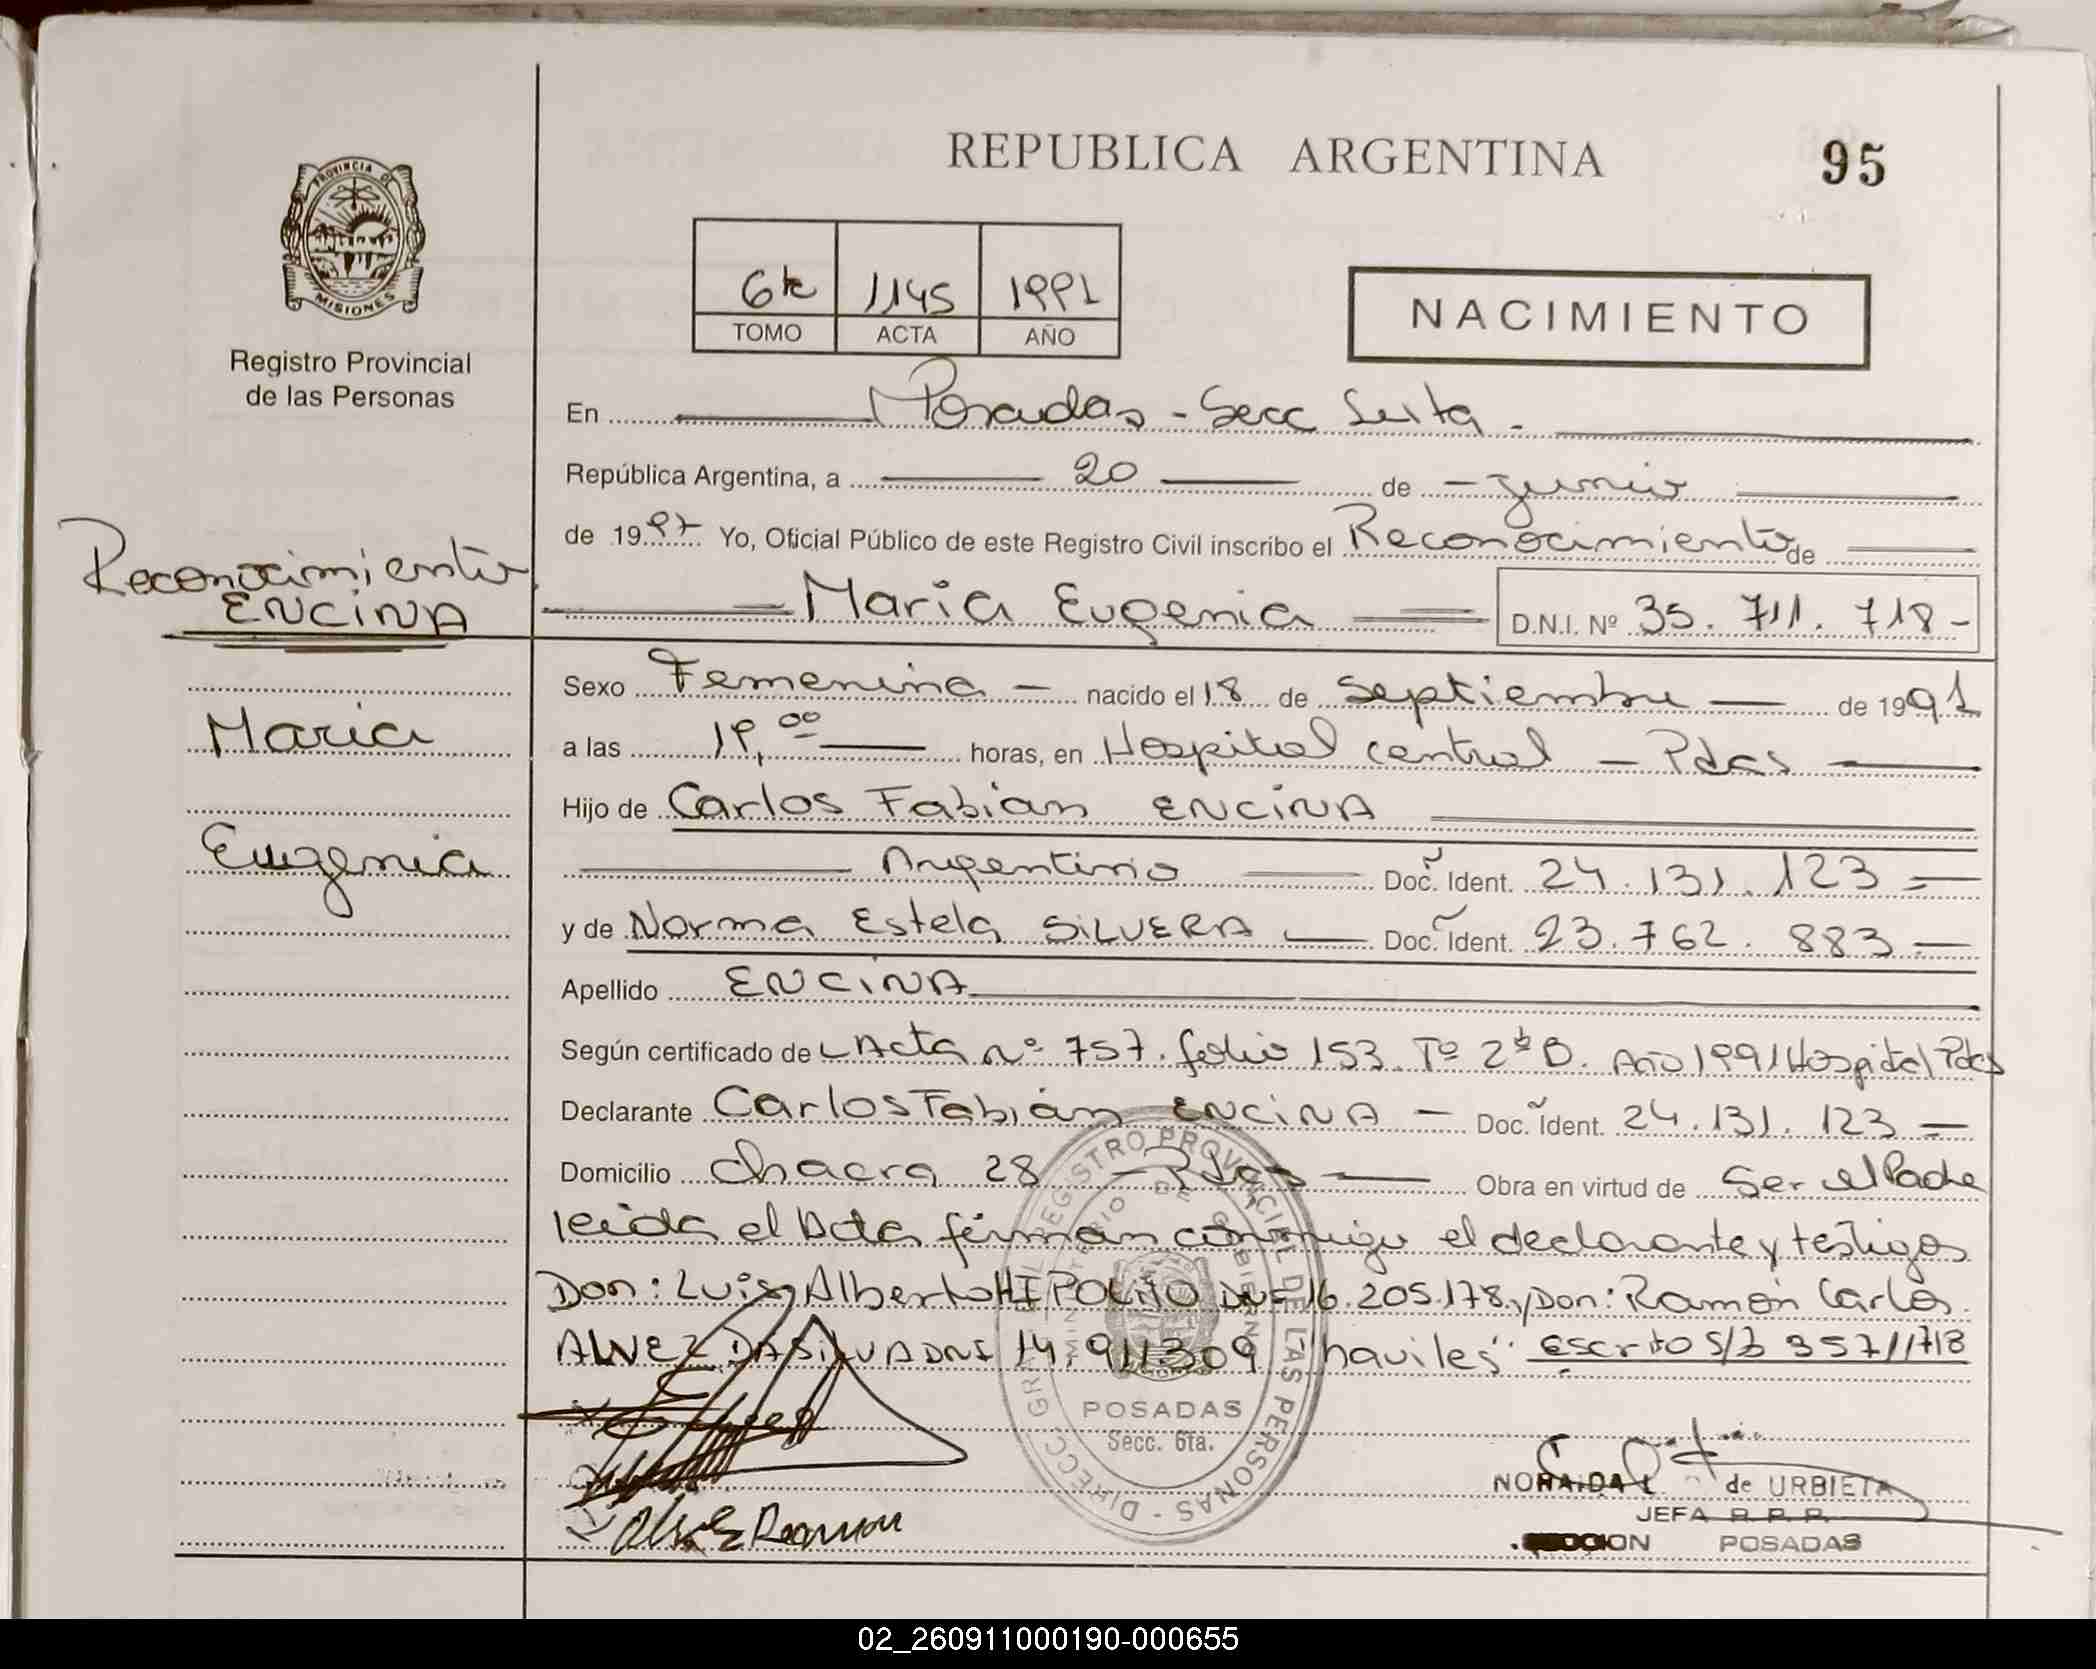 REPUBLICA ARGENTINA 95
PROVINCIA DE
MISIONES
Registro Provincial
de las Personas
6ta 1145 1991
TOMO ACTA AÑO
NACIMIENTO
En Posadas - Secc Sexta.
República Argentina, a 20 de junio
de 1997 Yo, Oficial Público de este Registro Civil inscribo el Reconocimiento de
Maria Eugenia D.N.I. Nº 35.711.718-
Reconocimiento
ENCINA
Maria
Eugenia
Sexo Femenina - nacido el 18 de Septiembre de 1991
a las 19,00 horas, en Hospital central - Pdas
Hijo de Carlos Fabian ENCINA
Argentino Doc. Ident. 24.131.123=
y de Norma Estela SILVERA Doc. Ident. 23.762.883=
Apellido ENCINA
Según certificado de Acta nº 757. folio 153. Tº 2 B. Año 1991 Hospital Pdas
Declarante Carlos Fabián ENCINA - Doc. Ident. 24.131.123=
Domicilio Chacra 28 - Pdas Obra en virtud de Ser el Padre
leida el Acta firman conmigo el declarante y testigos
Don: Luis Alberto HIPOLITO DNI 16.205.178, y Don: Ramón Carlos
ALVEZ DASILVA DNI 14.911.309 "haviles" escrito S/b 35711718
DIRECC. GRAL. REGISTRO PROVINCIAL DE LAS PERSONAS
MINISTERIO DE GOBIERNO
POSADAS
Secc. 6ta.
Alvez Ramon
NORAIDA de URBIETA
JEFA R. P. P.
POSADAS
02_260911000190-000655